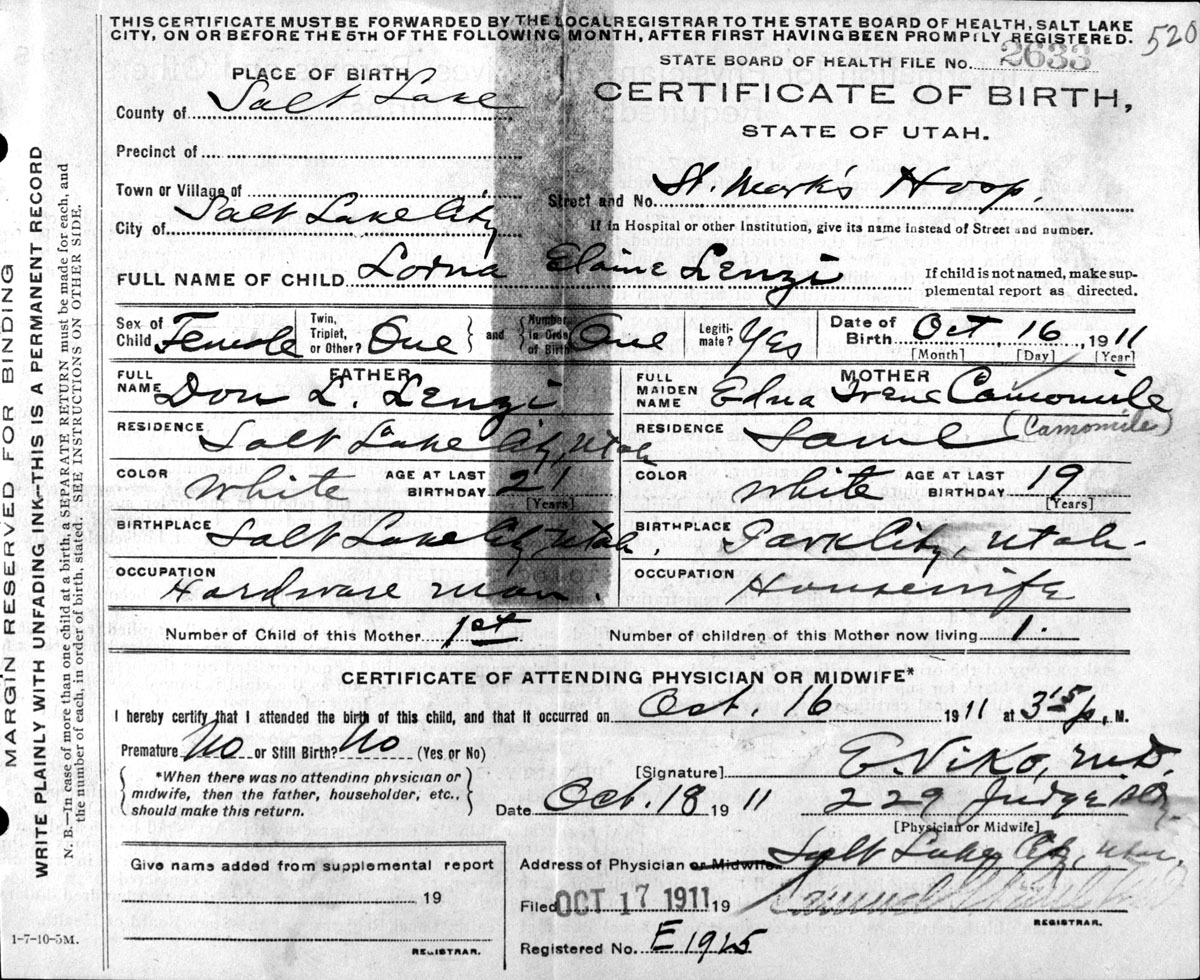 THIS CERTIFICATE MUST BE FORWARDED BY THE LOCAL REGISTRAR TO THE STATE BOARD OF HEALTH, SALT LAKE
CITY, ON OR BEFORE THE 5TH OF THE FOLLOWING MONTH, AFTER FIRST HAVING BEEN PROMPTLY REGISTERED.
520
STATE BOARD OF HEALTH FILE No. 2633
PLACE OF BIRTH
CERTIFICATE OF BIRTH,
STATE OF UTAH.
County of Salt Lake
Precinct of
Town or Village of
Street and No. St. Mark's Hosp.
City of Salt Lake City
If in Hospital or other Institution, give its name instead of Street and number.
FULL NAME OF CHILD Lorna Elaine Lenzi
If child is not named, make supplemental report as directed.
Sex of Child Female
Twin, Triplet, or Other? One
and
Number in Order of Birth One
Legitimate? Yes
Date of Birth Oct, 16, 1911
[Month] [Day] [Year]
FATHER
FULL NAME Don L. Lenzi
RESIDENCE Salt Lake City, Utah
COLOR White AGE AT LAST BIRTHDAY 21
[Years]
BIRTHPLACE Salt Lake City, Utah.
OCCUPATION Hardware man.
MOTHER
FULL MAIDEN NAME Edna Irene Camomile
(Camomile)
RESIDENCE Same
COLOR White AGE AT LAST BIRTHDAY 19
[Years]
BIRTHPLACE Park City, Utah-
OCCUPATION Housewife
Number of Child of this Mother 1st Number of children of this Mother now living 1.
CERTIFICATE OF ATTENDING PHYSICIAN OR MIDWIFE*
I hereby certify that I attended the birth of this child, and that it occurred on Oct. 16 1911 at 3 15 P. M.
Premature No or Still Birth? No (Yes or No)
*When there was no attending physician or
midwife, then the father, householder, etc.,
should make this return.
[Signature] E. Viko, M.D.
Date Oct. 18 1911 229 Judge Bldg.
[Physician or Midwife]
Address of Physician or Midwife Salt Lake City, Utah,
Give name added from supplemental report
19
REGISTRAR.
Filed OCT 17 1911 19
REGISTRAR.
Registered No. E1925
1-7-10-5M.
MARGIN RESERVED FOR BINDING
WRITE PLAINLY WITH UNFADING INK—THIS IS A PERMANENT RECORD
N. B.—In case of more than one child at a birth, a SEPARATE RETURN must be made for each, and
the number of each, in order of birth, stated. SEE INSTRUCTIONS ON OTHER SIDE.